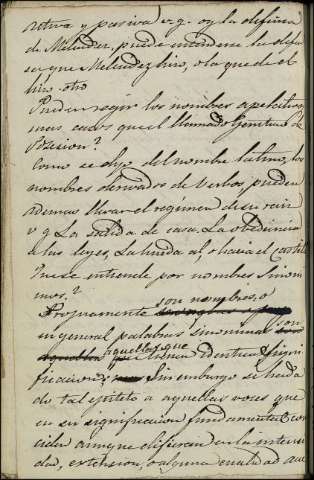 activa y pasiva v.g. oy la defensa
de Melendez, puede entenderse la defen
sa que Melendez hizo, o la que de el
hizo otro
Pueden regir los nombres apelativos
mas casos que el llamado Genitivo de
Posesion?
Como se dijo del nombre latino, los
nombres derivados de Verbos pueden
ademas llevar el regimen de su raiz
v g La salida de casa, La obediencia
a las leyes, La huida al, o hacia el castillo
Que se entiende por nombres Sinoni
mos?
Propiamente son nombres, o
en general palabras sinonimas son
aquellas que tienen identica signi
ficacion; Sin embargo se ha da
do tal epiteto a aquellas voces que
en su significacion fundamental con
ciden aunque difieran en la intensi
dad, extension, o alguna cualidad que